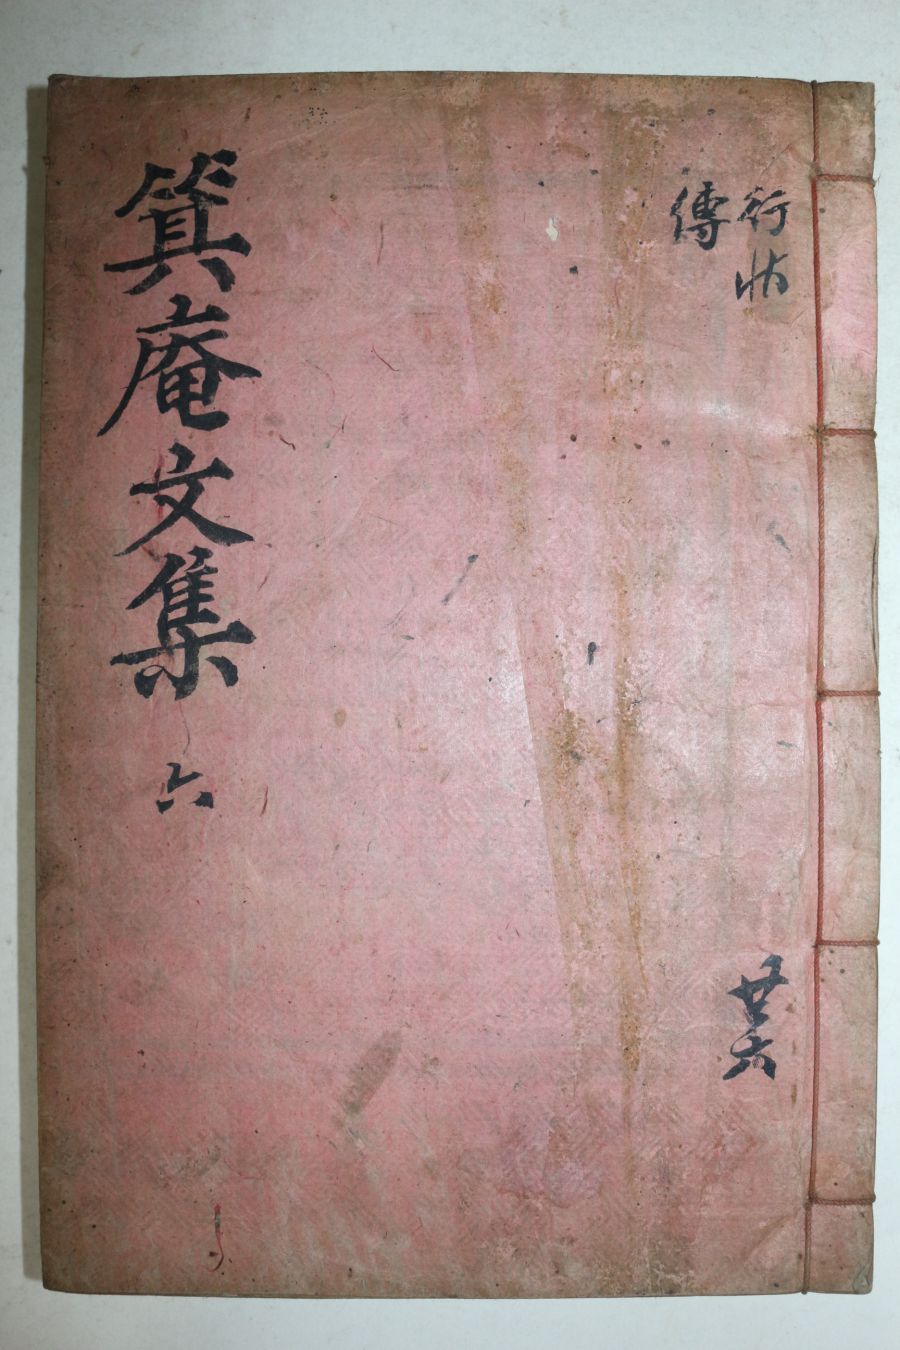 行狀
傳
箕庵文集 六
共六